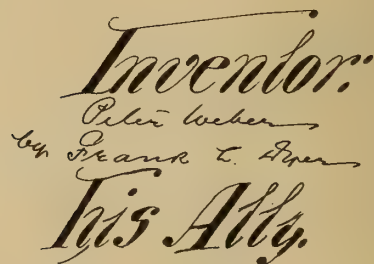 Inventor:
Peter Weber
by Frank L. Dyer
His Atty.